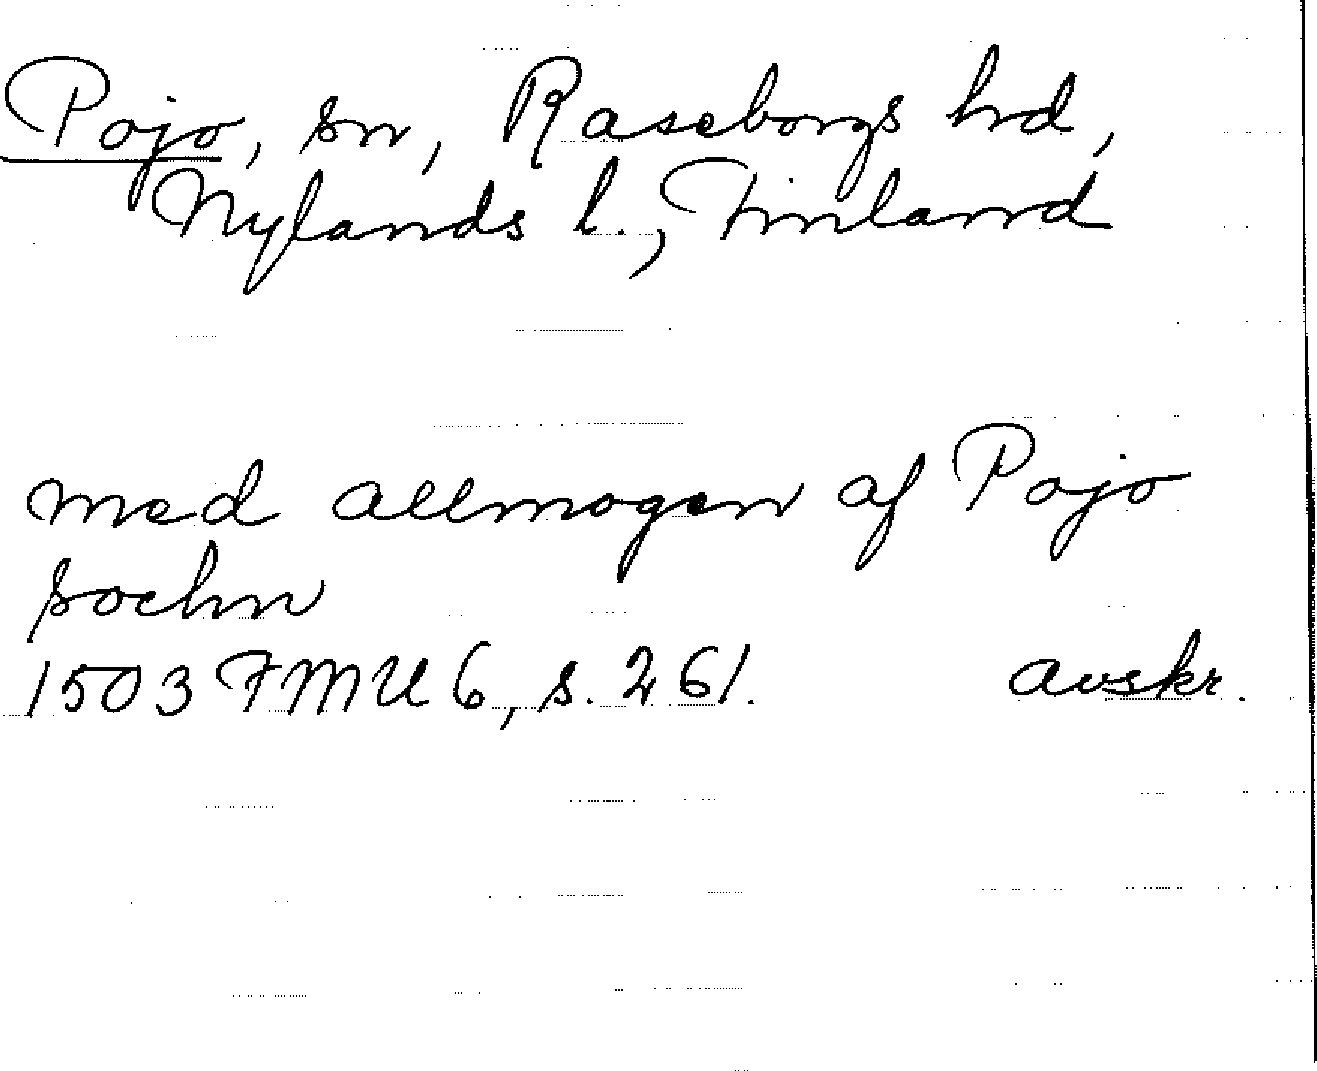 Pojo, sn, Raseborgs hd,
Nylands l., Finland
med allmogen af Pojo
sochn
1503 FMU 6, s. 261. avskr.